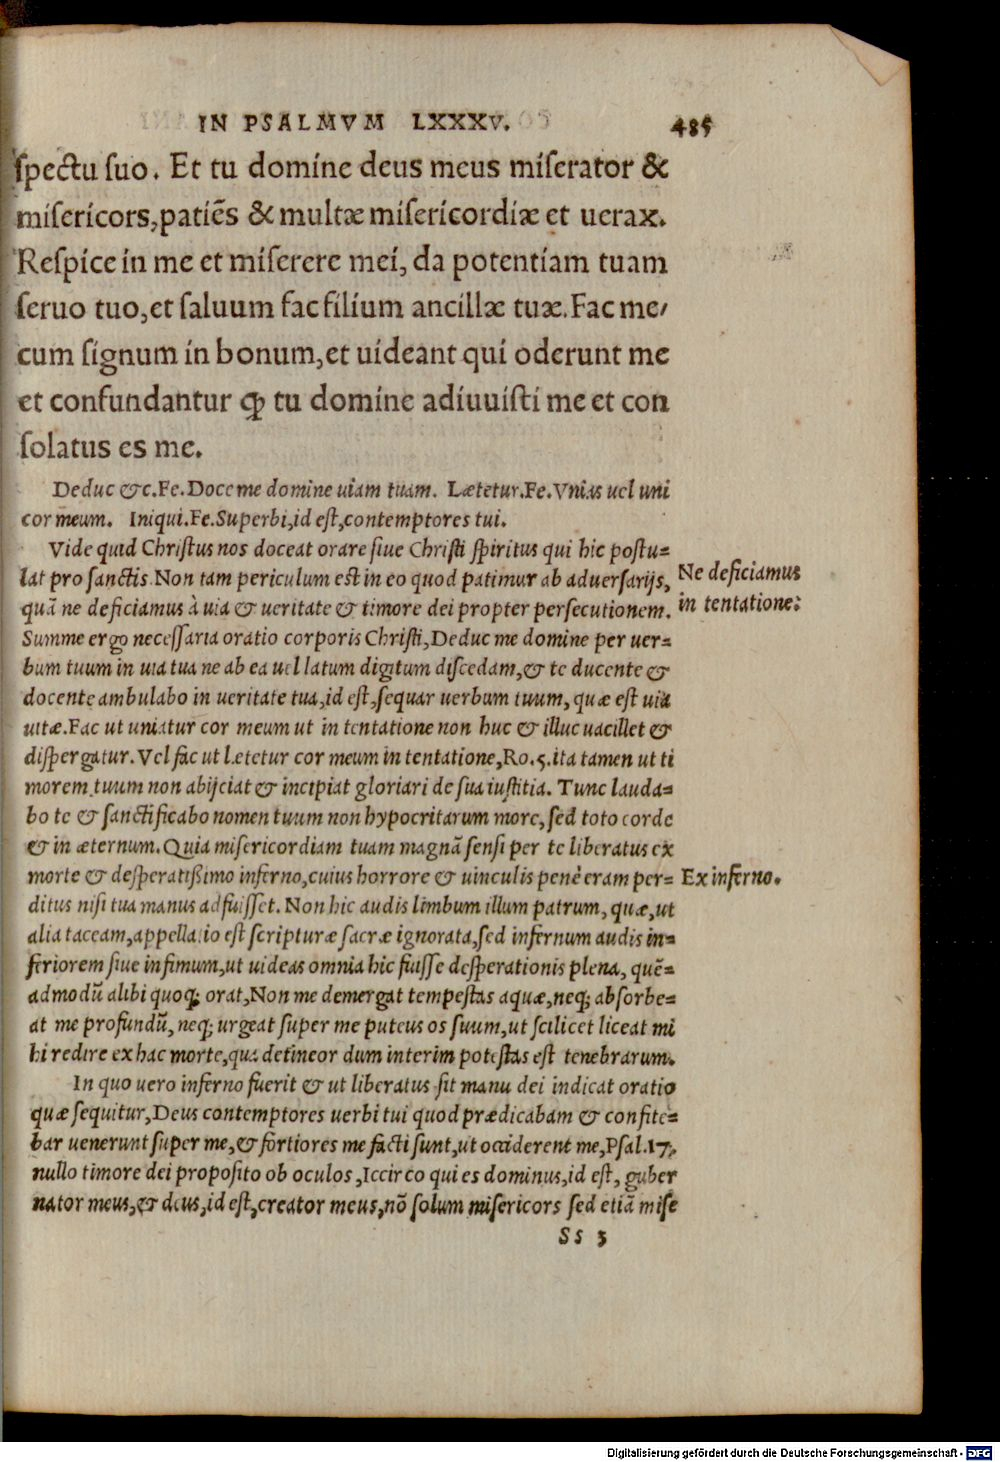 IN PSALMVM LXXXV. 485
spectu suo. Et tu domine deus meus miserator &
misericors, patiēs & multæ misericordiæ et uerax.
Respice in me et miserere mei, da potentiam tuam
seruo tuo, et saluum fac filium ancillæ tuæ. Fac me/
cum signum in bonum, et uideant qui oderunt me
et confundantur ꝙ tu domine adiuuisti me et con
solatus es me.
Deduc &c. Fe. Doce me domine uiam tuam. Lætetur. Fe. Vnias uel uni
cor meum. Iniqui. Fe. Superbi, id est, contemptores tui.
Vide quid Christus nos doceat orare siue Christi spiritus qui hic postu=
lat pro sanctis. Non tam periculum est in eo quod patimur ab aduersarijs,
Ne deficiamus
quā ne deficiamus à uia & ueritate & timore dei propter persecutionem.
in tentatione.
Summe ergo necessaria oratio corporis Christi, Deduc me domine per uer=
bum tuum in uia tua ne ab ea uel latum digitum discedam, & te ducente &
docente ambulabo in ueritate tua, id est, sequar uerbum tuum, quæ est uia
uitæ. Fac ut uniatur cor meum ut in tentatione non huc & illuc uacillet &
dispergatur. Vel fac ut letetur cor meum in tentatione, Ro. 5. ita tamen ut ti
morem tuum non abijciat & incipiat gloriari de sua iustitia. Tunc lauda=
bo te & sanctificabo nomen tuum non hypocritarum more, sed toto corde
& in æternum. Quia misericordiam tuam magnā sensi per te liberatus ex
morte & desperatißimo inferno, cuius horrore & uinculis penè eram per=
Ex inferno.
ditus nisi tua manus adfuisset. Non hic audis limbum illum patrum, quæ, ut
alia taceam, appellatio est scripturæ sacræ ignorata, sed infernum audis in=
feriorem siue infimum, ut uideas omnia hic fuisse desperationis plena, quē=
admodū alibi quoq; orat, Non me demergat tempestas aquæ, neq; absorbe=
at me profundū, neq; urgeat super me puteus os suum, ut scilicet liceat mi
hi redire ex hac morte, qua detineor dum interim potestas est tenebrarum.
In quo uero inferno fuerit & ut liberatus sit manu dei indicat oratio
quæ sequitur, Deus contemptores uerbi tui quod prædicabam & confite=
bar uenerunt super me, & fortiores me facti sunt, ut occiderent me, Psal. 17.
nullo timore dei proposito ob oculos, Iccirco qui es dominus, id est, guber
nator meus, & deus, id est, creator meus, nō solum misericors sed etiā mise
Ss 3
Digitalisierung gefördert durch die Deutsche Forschungsgemeinschaft - DFG